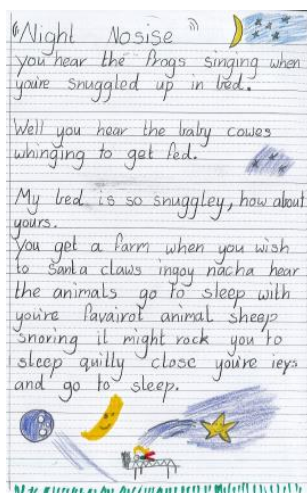 Night Nosise
you hear the frogs singing when
you're snuggled up in bed.
Well you hear the baby cowes
whinging to get fed.
My bed is so snuggley, how about
yours.
You get a farm when you wish
to Santa claws ingoy nacha hear
the animals go to sleep with
you're favairot animal sheep
snoring it might rock you to
sleep quitly close you're ieys
and go to sleep.